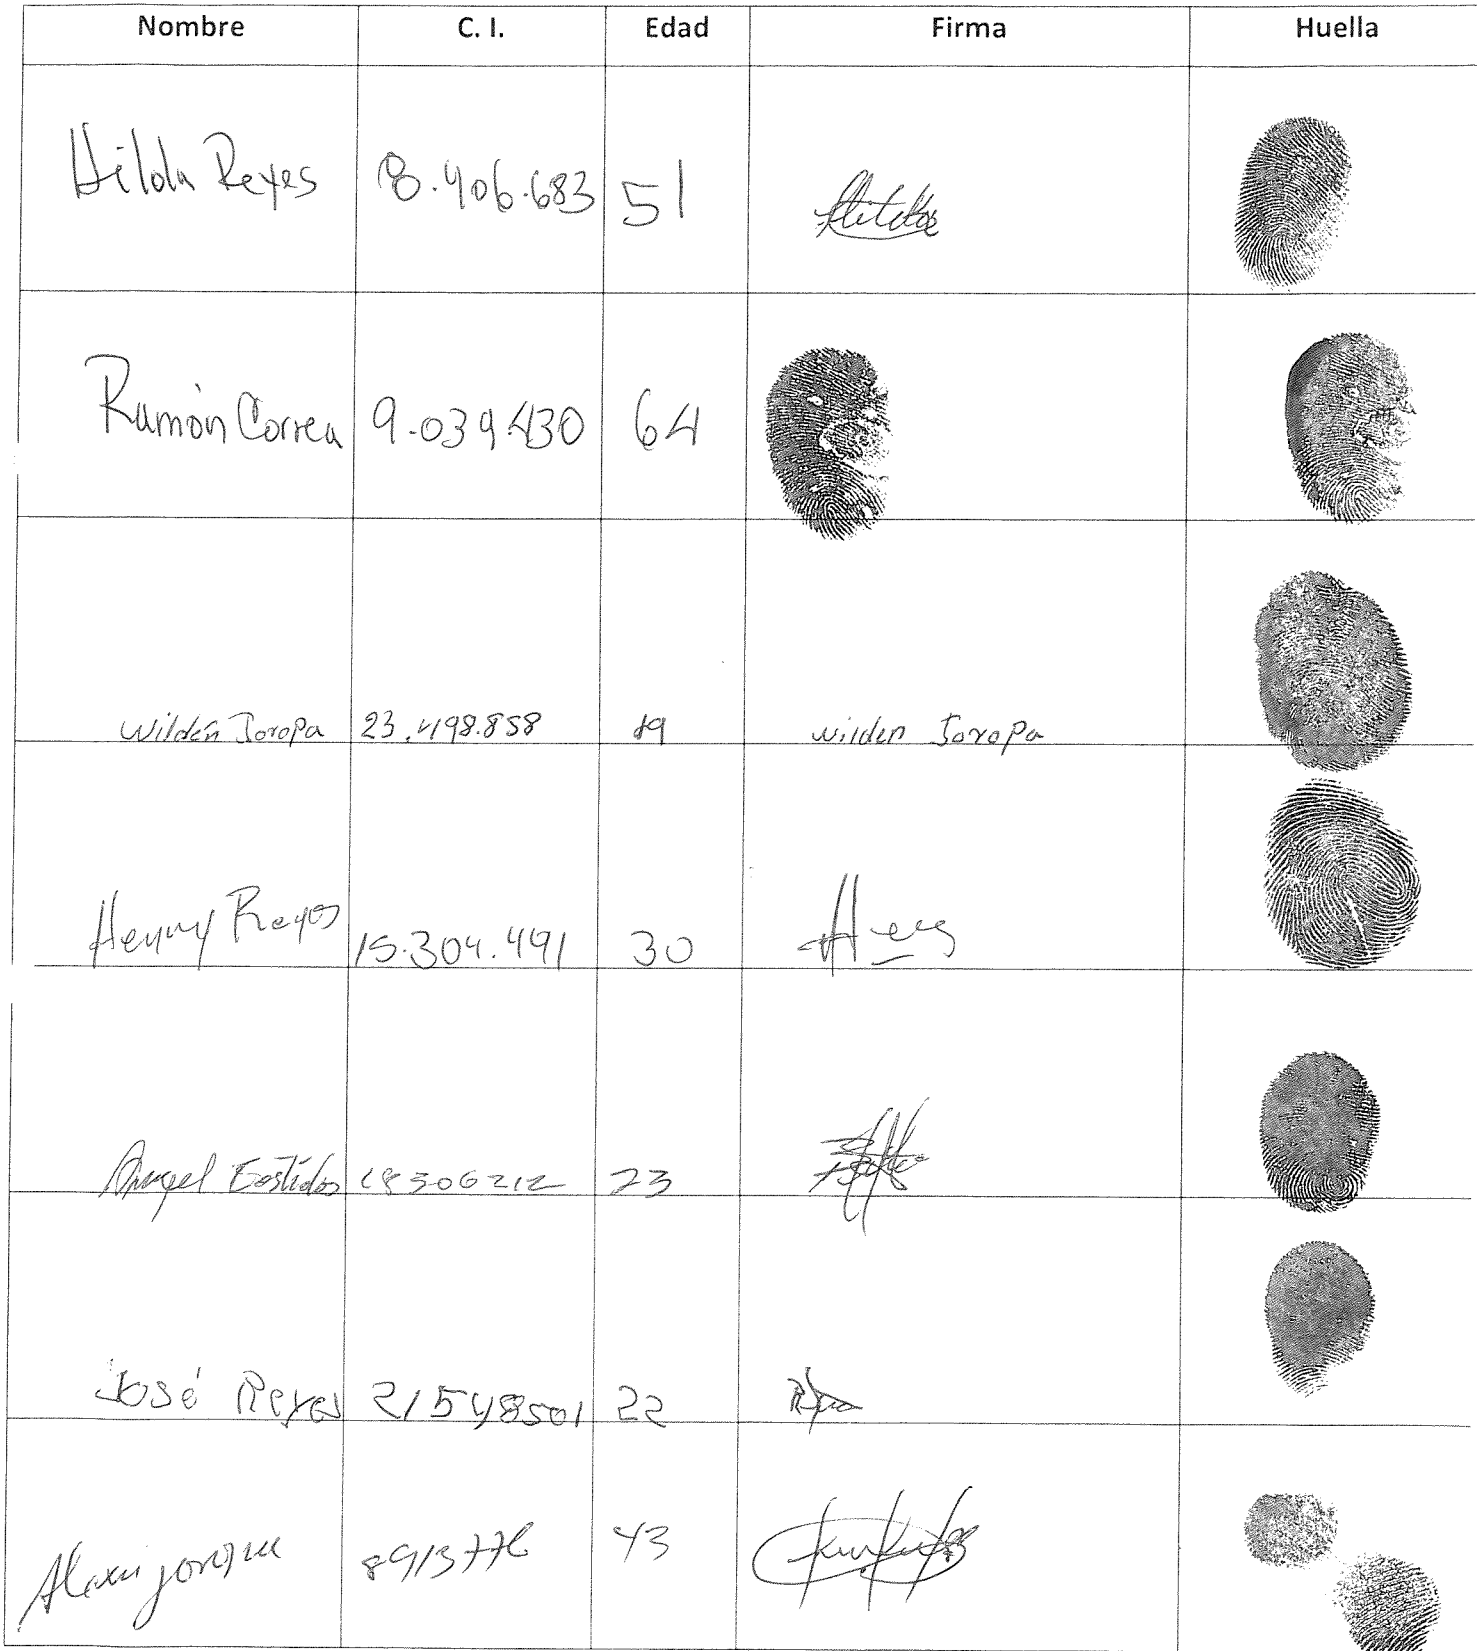 Nombre C. I. Edad Firma Huella
Hilda Reyes 8.406.683 51
Ramón Correa 9.039430 64
Wilden Joropa 23.498.858 19 wilden Joropa
Henry Reyes 15.304.491 30
Angel 18306212 23
José Reyes 21548501 22
8913776 43